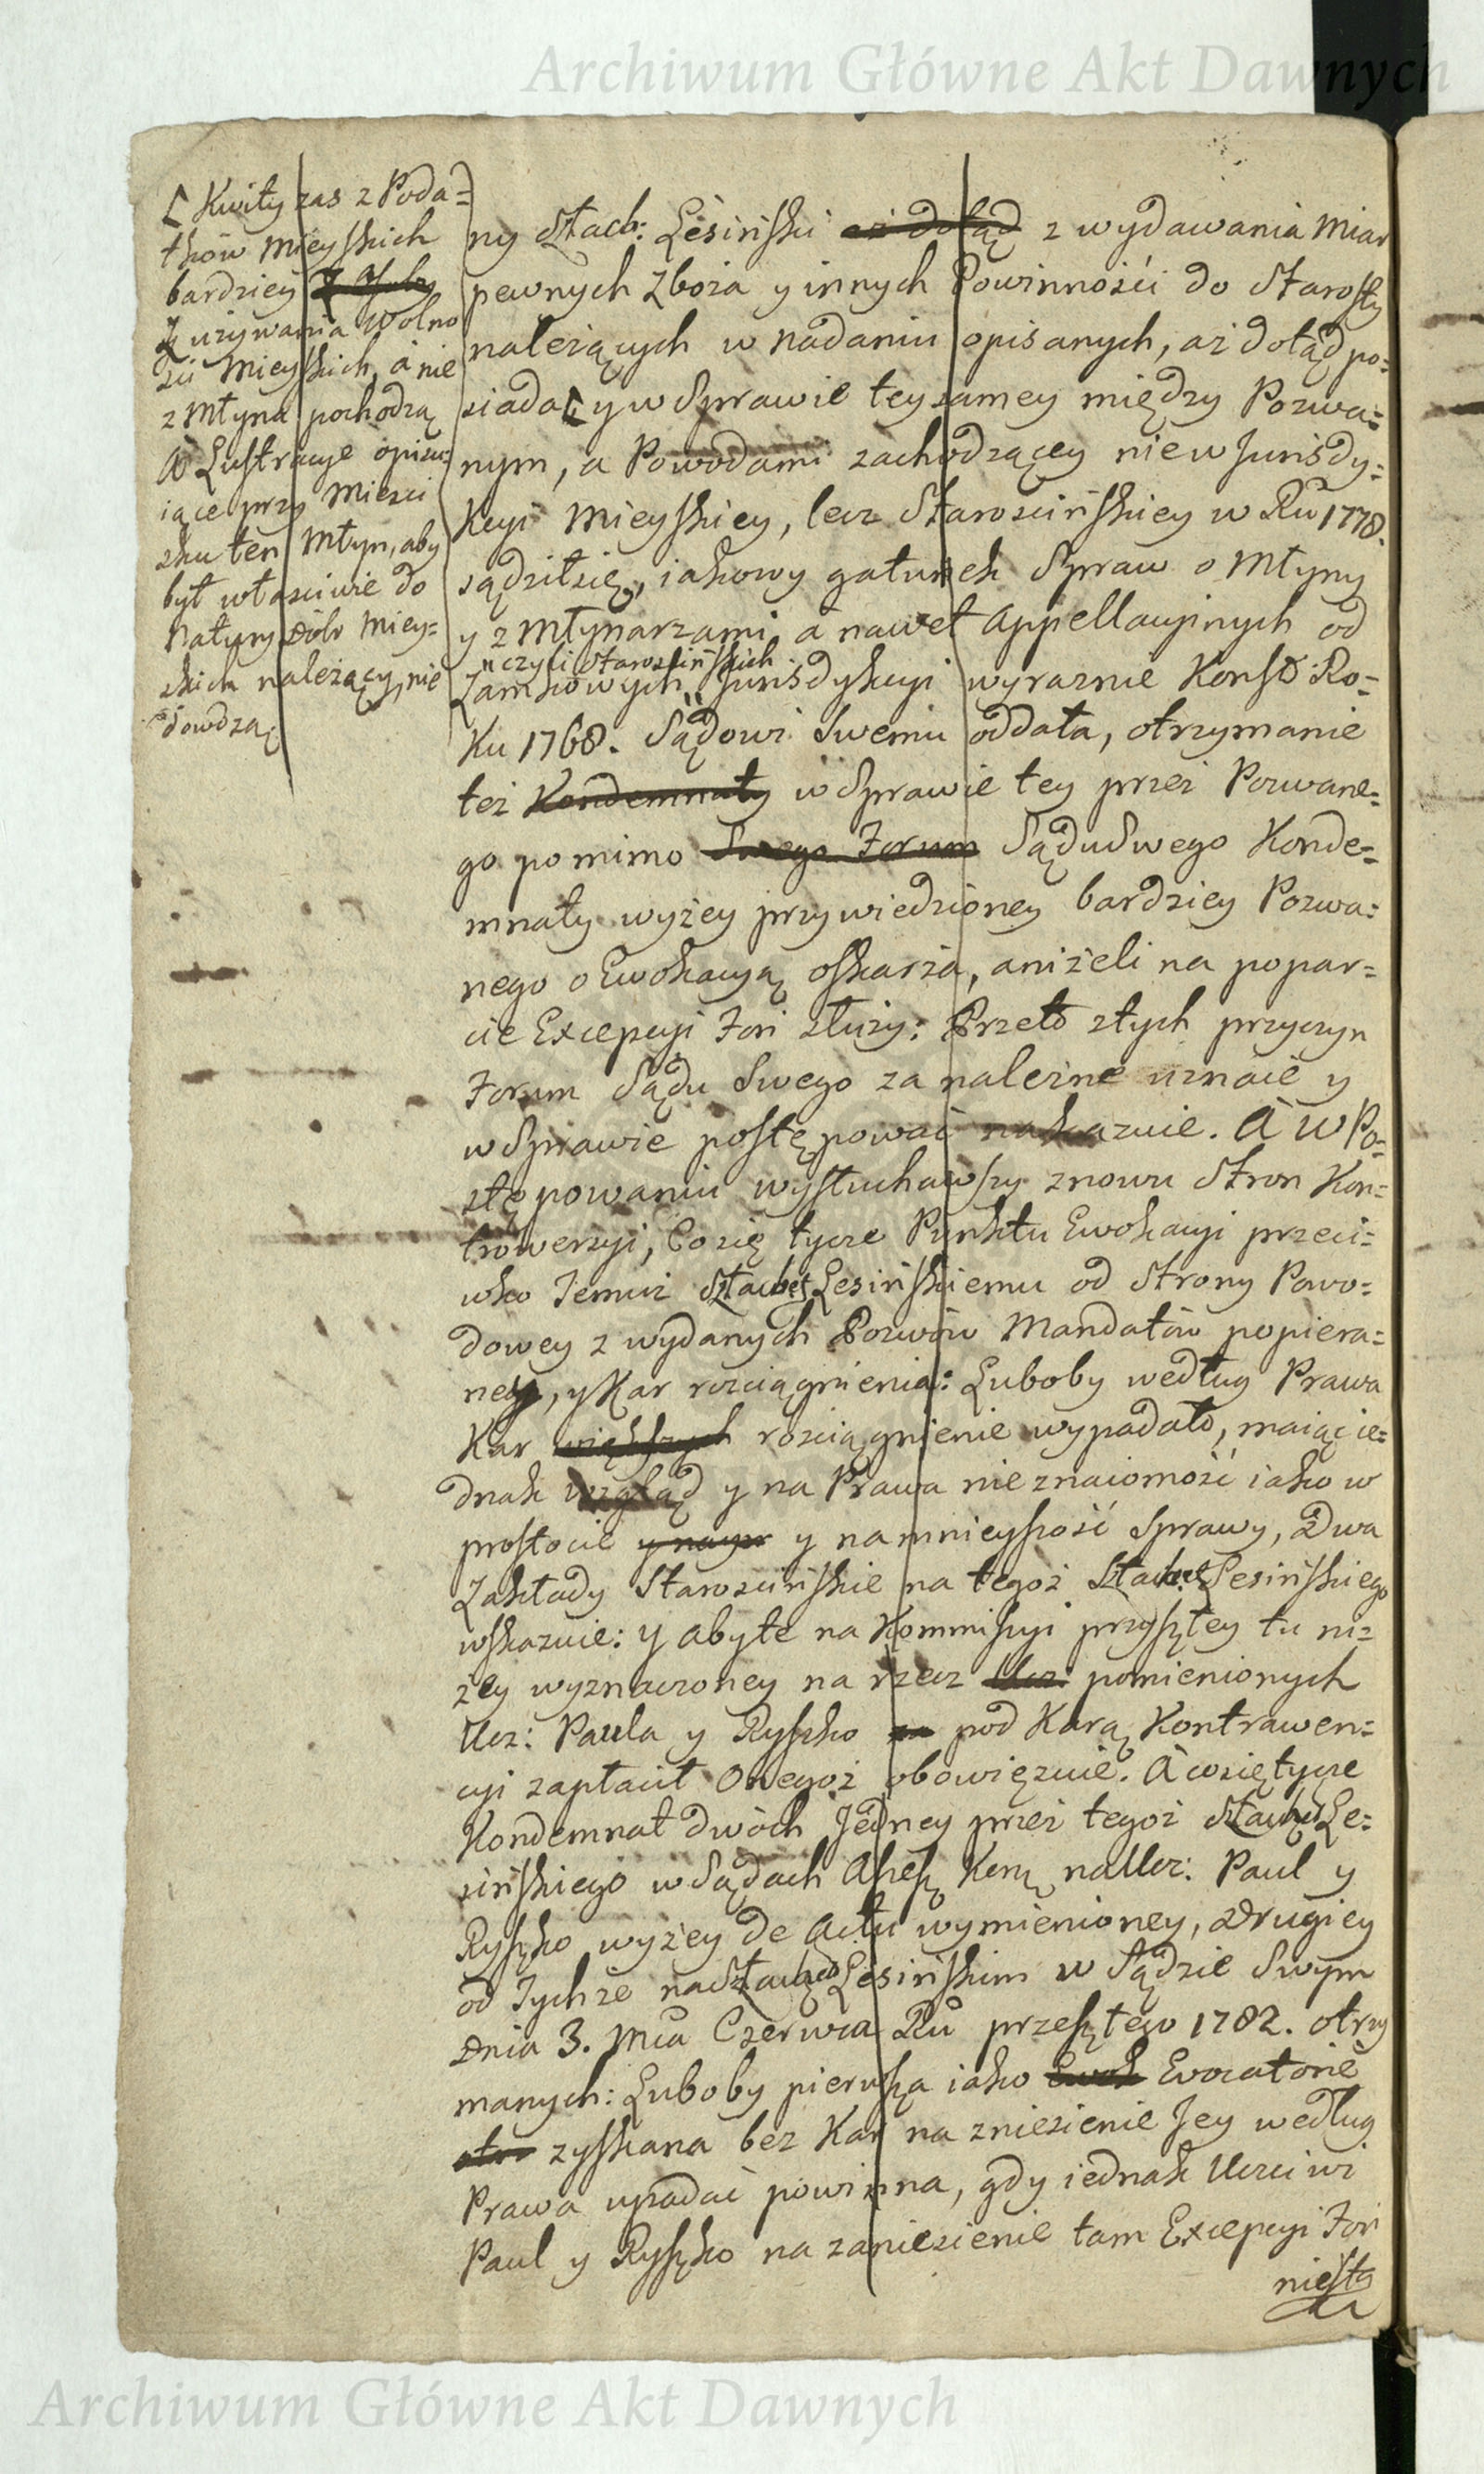 Archiwum Główne Akt Dawnych
[ Kwity zas z Poda=
tkow Mieyskich
bardziey
z używania Wolno
sci Mieyskich, a nie
z Młyna pochodzą
A Lustracye opisu=
iące przy Mieści
sku ten Młyn, aby
był właściwie do
Natury Dóbr Miey=
skich należący, nie
dowodzą
ny Szlach: Lesiński aż dotąd z wydawania Miar
pewnych Zboża y innych Powinności do Starosty
należących w nadaniu opisanych, aż dotąd po=
siadał [ y w Sprawie tey samey między Pozwa=
nym, a Powodami zachodzącey nie w Jurisdy=
kcyi Mieyskiey, lecz Starościńskiey w Ru 1778.
sądził się, iakowy gatunek Spraw o Młyny
y z Młynarzami, a nawet Appellacyinych od
czyli Starościńskich
Zamkowych Jurisdykcyi wyraznie Konst: Ro=
ku 1768. Sądowi Swemu oddała, otrzymanie
też Kondemnaty w Sprawie tey przez Pozwane=
go pomimo Swego Forum Sądu Swego Konde=
mnaty wyżey przywiedzioney bardziey Pozwa=
nego o Ewokacyą oskarża, aniżeli na popar=
cie Excepcyi Fori służy: Przeto z tych przyczyn
Forum Sądu Swego za należne uznaie y
w Sprawie postępować nakazuie. A w Po=
stępowaniu wysłuchawszy znowu Stron Kon=
trowersyi, Co się tycze Punktu Ewokacyi przeci=
wko Temuż Szlachet Lesińskiemu od Strony Powo=
dowey z wydanych Pozwów Mandatów popiera=
ney, y Kar rozciągnienia: Luboby według Prawa
Kar większych rozciągnienie wypadało, maiąc ie=
dnak wzgląd y na Prawa nieznaiomość iako w
prostocie y na mnieyszość Sprawy, Dwa
Zakłady Starościńskie na tegoż Szlachet Lesińskiego
wskazuie: y abyte na Kommissyi przyszłey tu ni=
żey wyznaczoney na rzecz Ucz: pomienionych
Ucz: Paula y Ryszko za pod Karą Kontrawen=
cyi zapłacił Onegoż obowięzuie. A co się tycze
Kondemnat dwóch Jedney przez tegoż Szlachet Le=
sińskiego w Sądach Assess Kony na Ucz: Paul y
Ryszko wyżey de Actu wymienioney, Drugiey
od Tychże na Szlachet Lesińskim w Sądzie Swym
Dnia 3. Mca Czerwca Ru przeszłego 1782. otrzy
manych: Luboby pierwsza iako Ewok Evocatorie
otrz zyskana bez Kar na zniesienie Jey według
Prawa upadać powinna, gdy iednak Uczciwi
Paul y Ryszko na zaniesienie tam Excepcyi Fori
niesta
Archiwum Główne Akt Dawnych